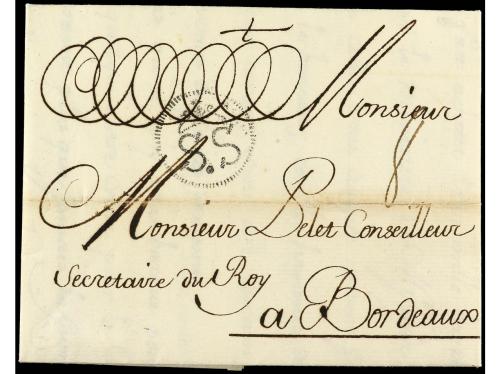 Monsieur
S.S
8
Monsieur Pelet Conseilleur
Secretaire du Roy
a Bordeaux